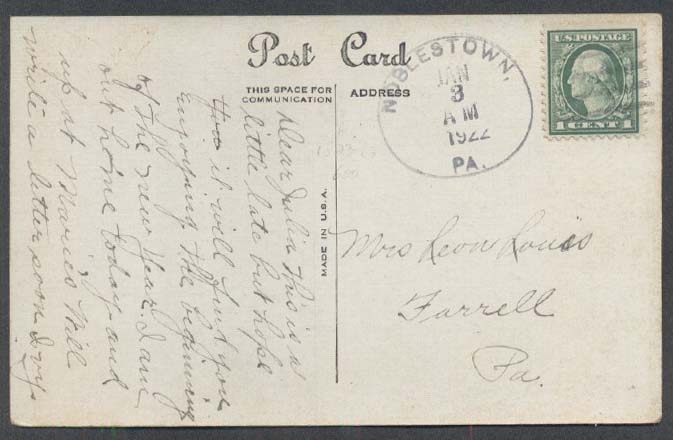 Post Card
THIS SPACE FOR
COMMUNICATION
ADDRESS
MADE IN U.S.A.
NOBLESTOWN,
JAN
3
A M
1922
PA.
U.S. POSTAGE
1 CENT 1
Dear Julia This is a
little late but hope
it will find you
enjoying the beginning
of the new year. I am
out home today and
up at Marie's Will
write a letter soon Ivy
Mrs Leon Louis
Farrell
Pa.